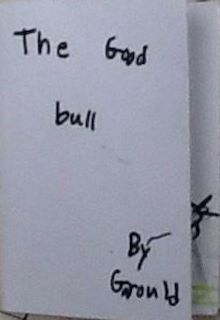 The Good
bull
By
Gronld